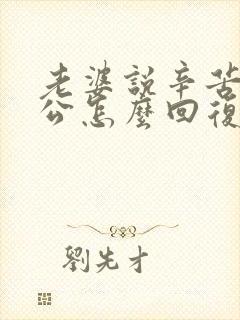 老婆說辛苦
公怎麼回復
劉先才